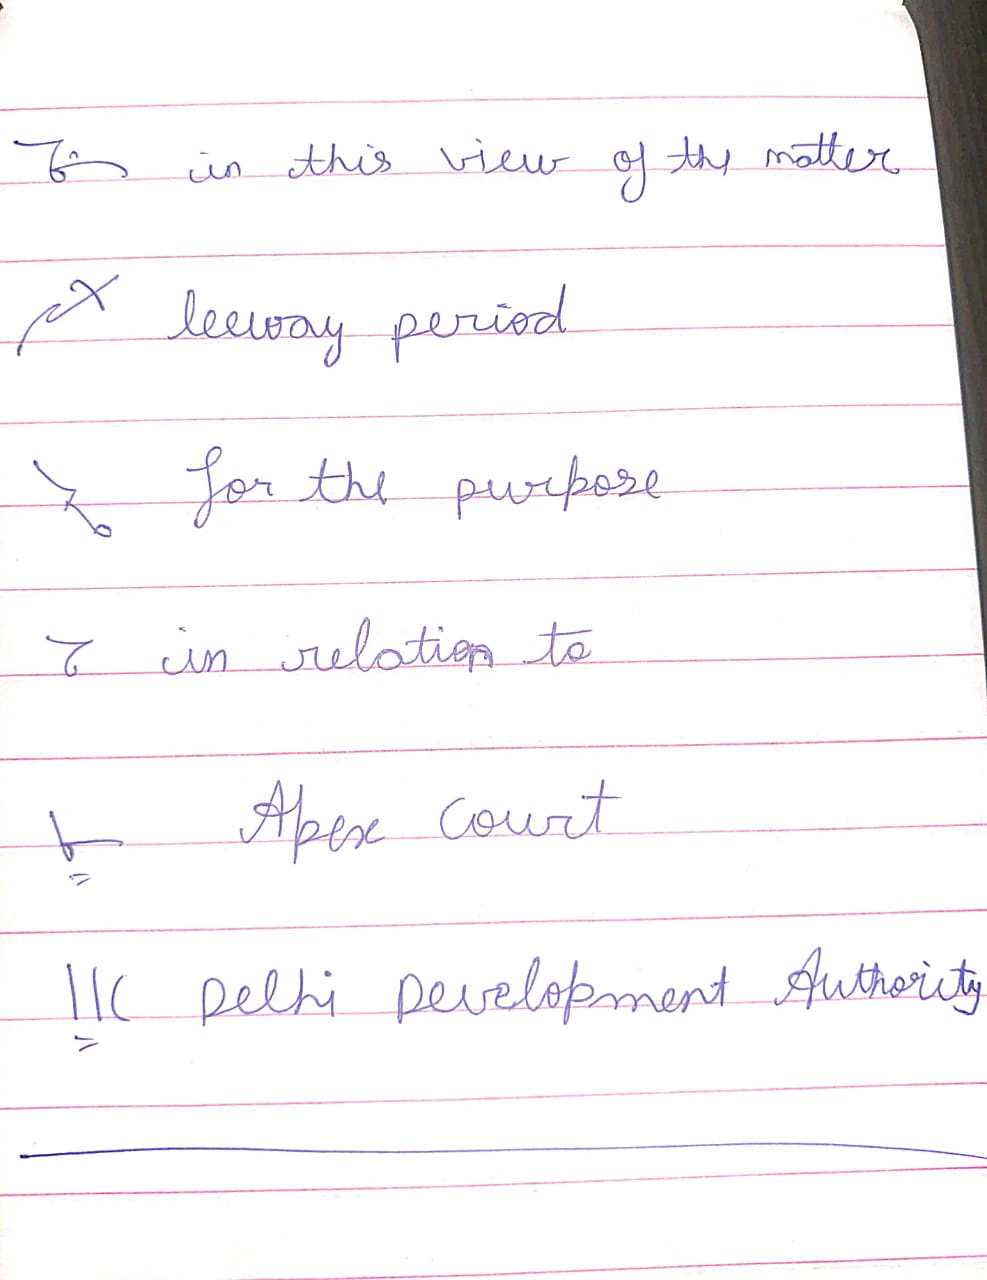 in this view of the matter
leeway period
for the purpose
in relation to
Apex Court
Delhi Development Authority